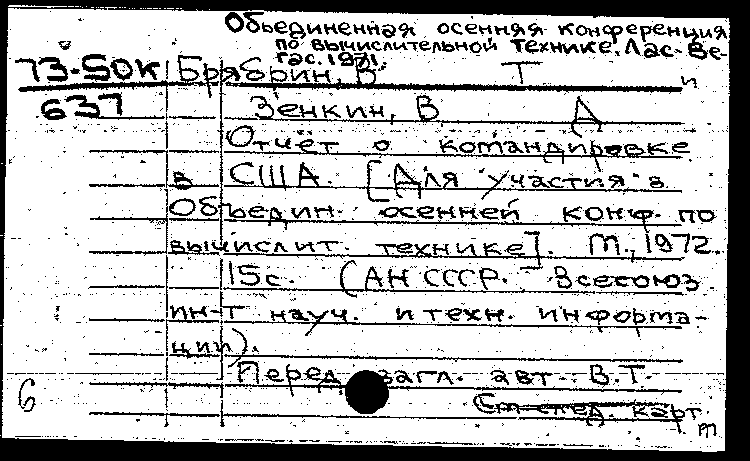 Объединенная осенняя конференция
по вычислительной технике. Лас-Ве-
гас. 1971.
73-50К Брябрин, В Т
и
637 Зенкин, В Д
Отчёт о командировке
в США. [Для участия в
Объедин. осенней конф. по
вычислит. технике]. М., 1972.
15с. (АН СССР. Всесоюз
ин-т науч. и техн. информа-
ции).
Перед загл. авт. В.Т.
6
См след. карт
т